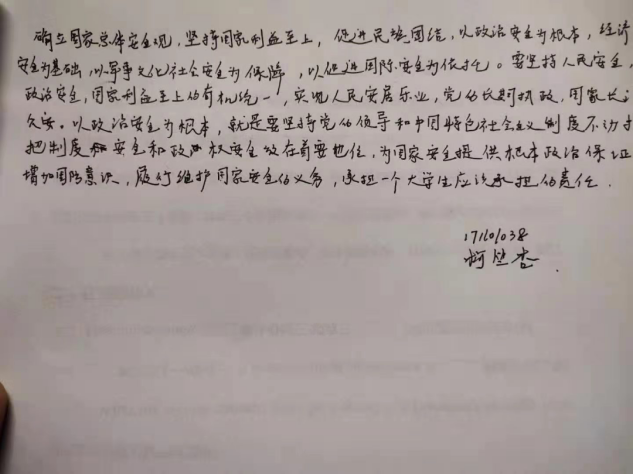 确立国家总体安全观，坚持国家利益至上，促进民族团结，以政治安全为根本，经济
安全为基础，以军事文化社会安全为保障，以促进国际安全为依托。要坚持人民安全，
政治安全，国家利益至上的有机统一，实现人民安居乐业，党的长期执政，国家长治
久安。以政治安全为根本，就是要坚持党的领导和中国特色社会主义制度不动摇
把制度安全和政权安全放在首要地位，为国家安全提供根本政治保证
增加国防意识，履行维护国家安全的义务，承担一个大学生应该承担的责任．
17101038
柯竺杏